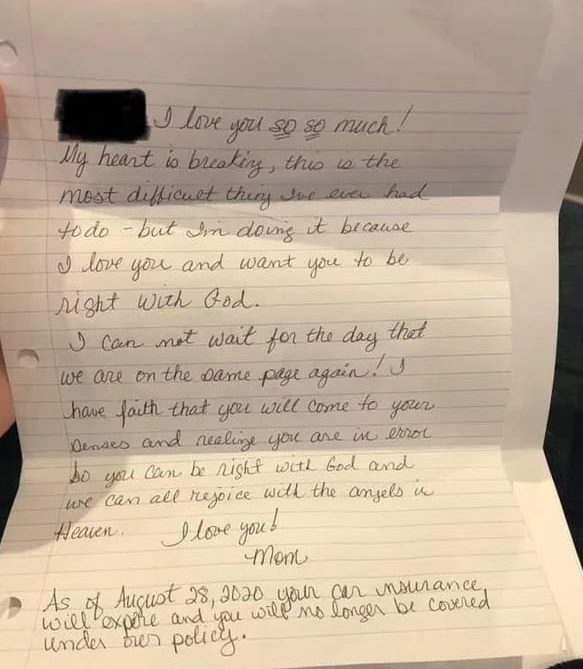 I love you so so much!
My heart is breaking, this is the
most difficult thing I've ever had
to do - but I'm doing it because
I love you and want you to be
right with God.
I can not wait for the day that
we are on the same page again! I
have faith that you will come to your
senses and realize you are in error
so you can be right with God and
we can all rejoice with the angels in
Heaven. I love you!
Mom
As of August 28, 2020 your car insurance
will expire and you will no longer be covered
under our policy.